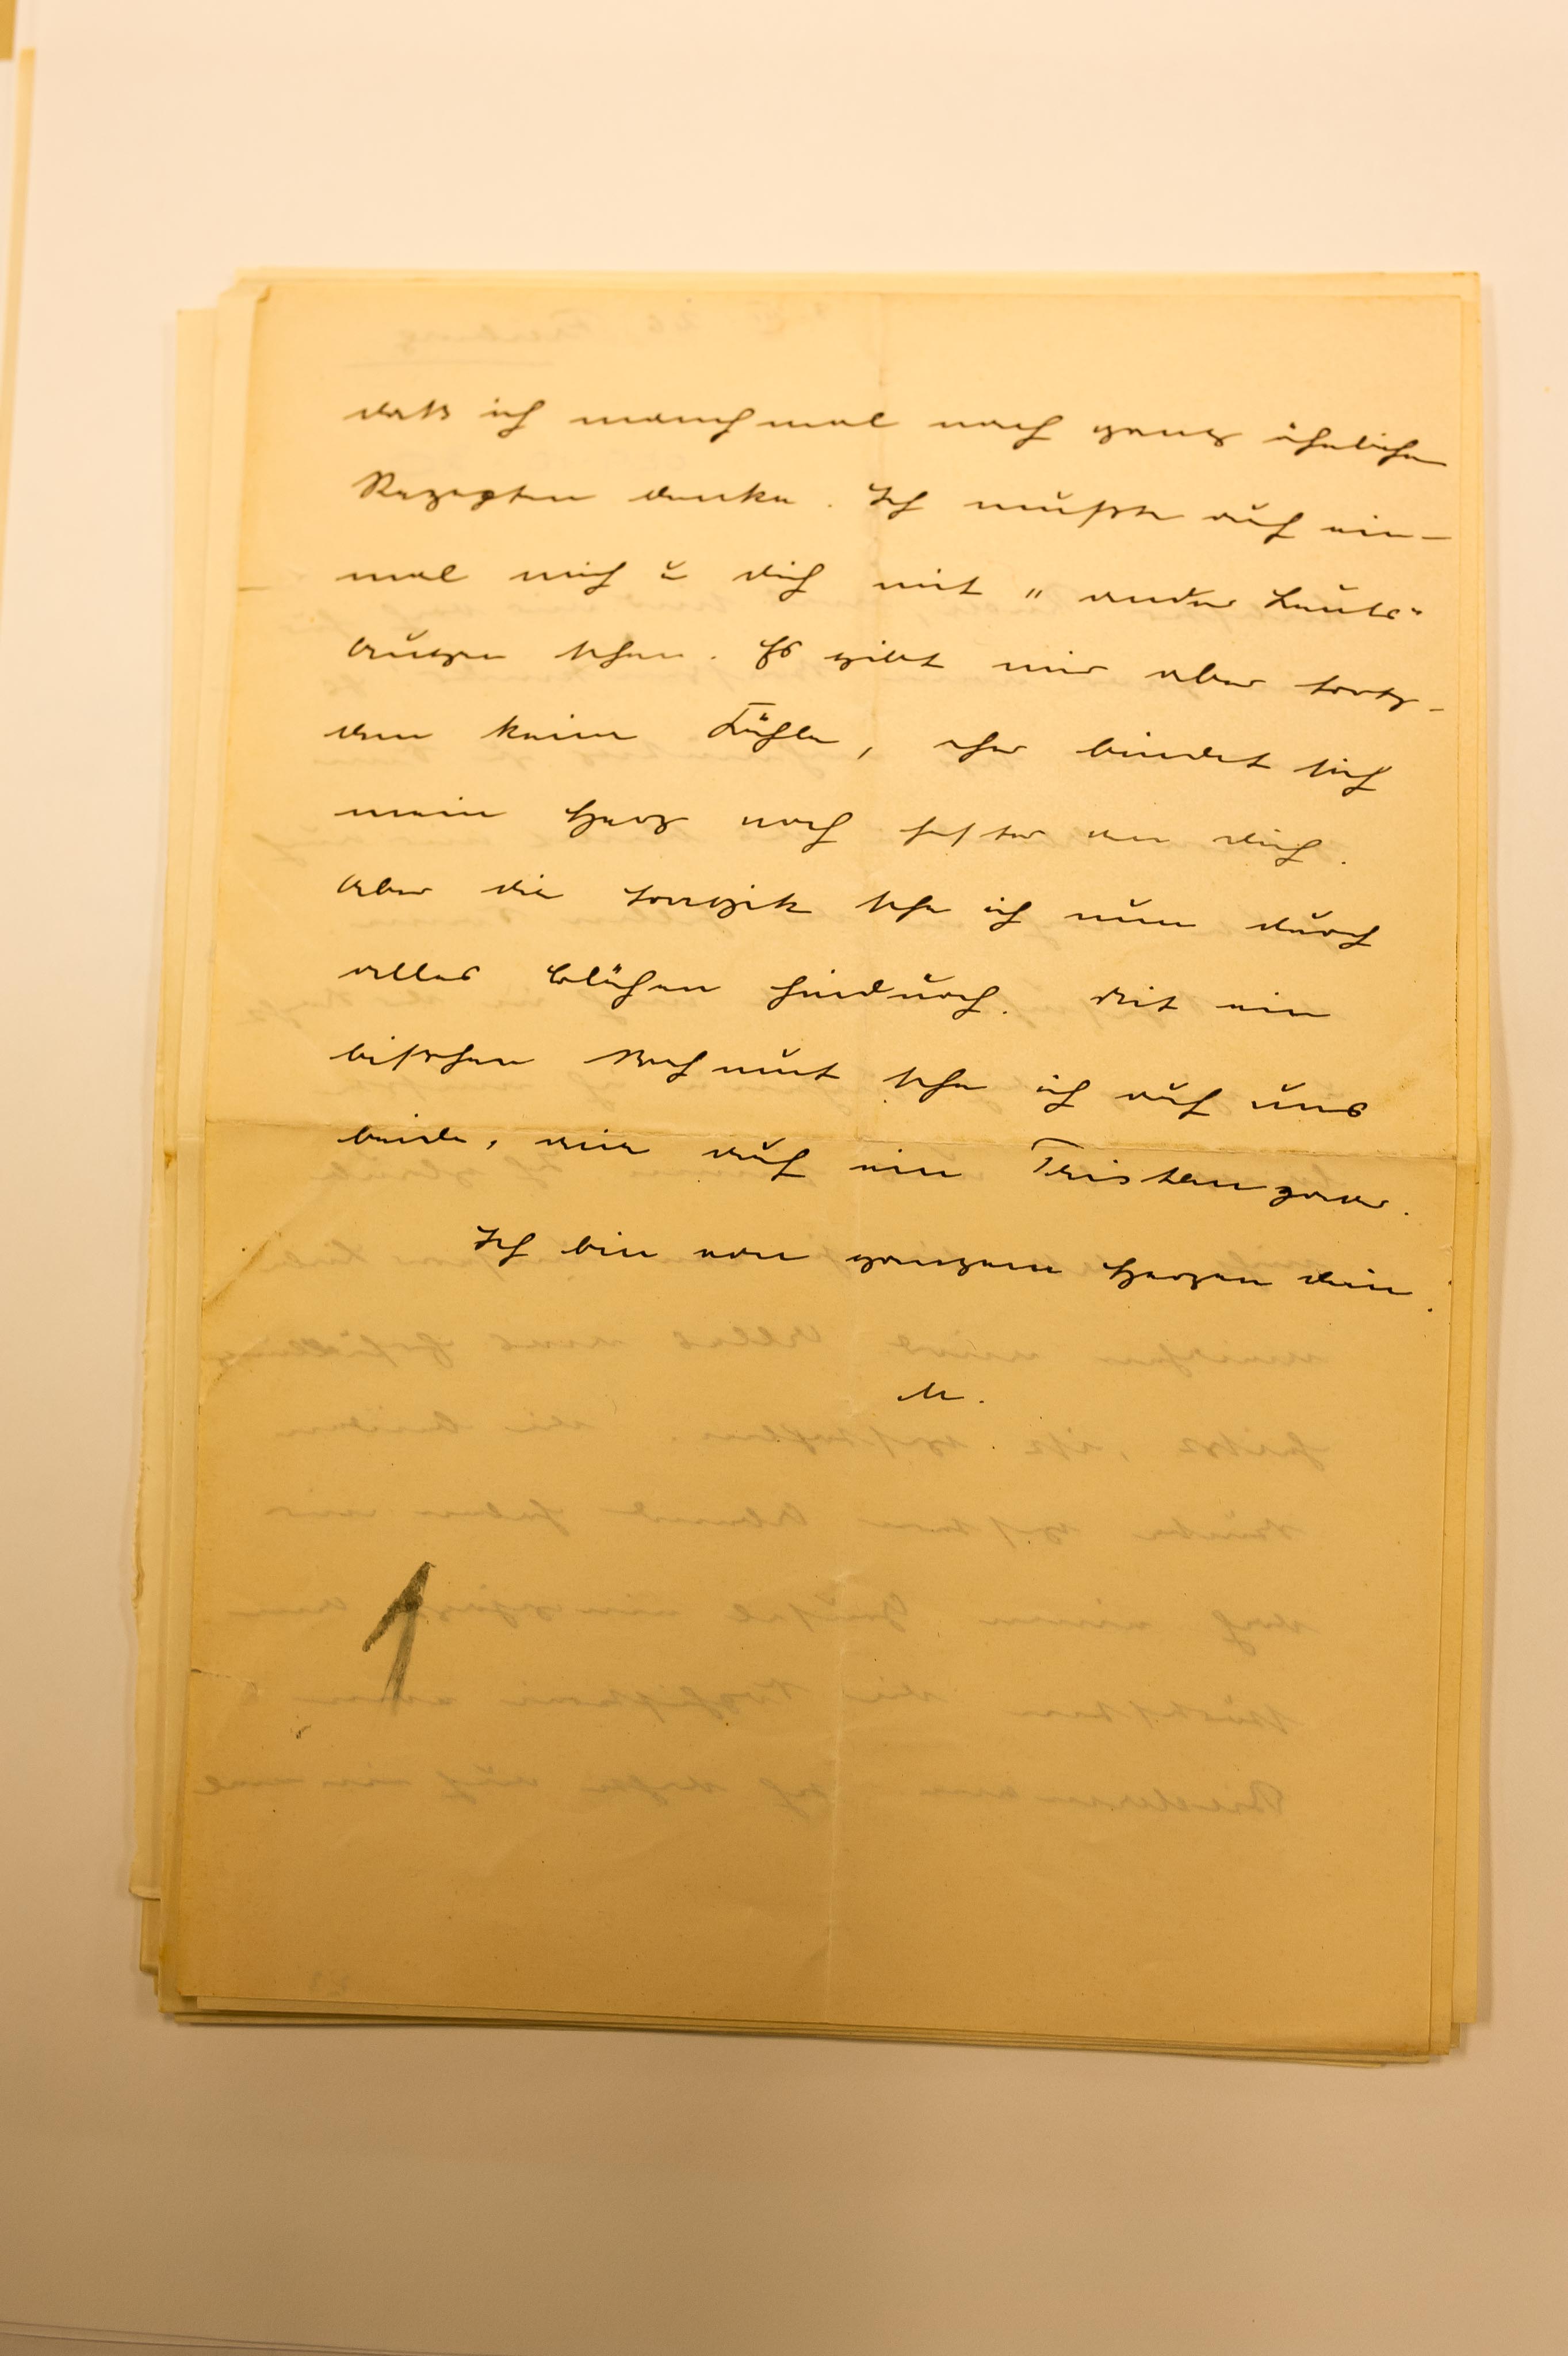 daß ich manchmal nach ganz ähnlichen
Rezepten denke. Ich mußte auf ein-
mal mich u dich mit „andrer Leute"
Augen sehen. Es gibt mir aber trotz-
dem keine Kühle, eher bindet sich
mein Herz noch fester an dich.
Aber die Tragik sehe ich nun durch
alles Blühen hindurch. Mit ein
bißchen Wehmut sehe ich auf uns
beide, wie auf ein Tristanpaar.
Ich bin von ganzem Herzen dein.
M.
1